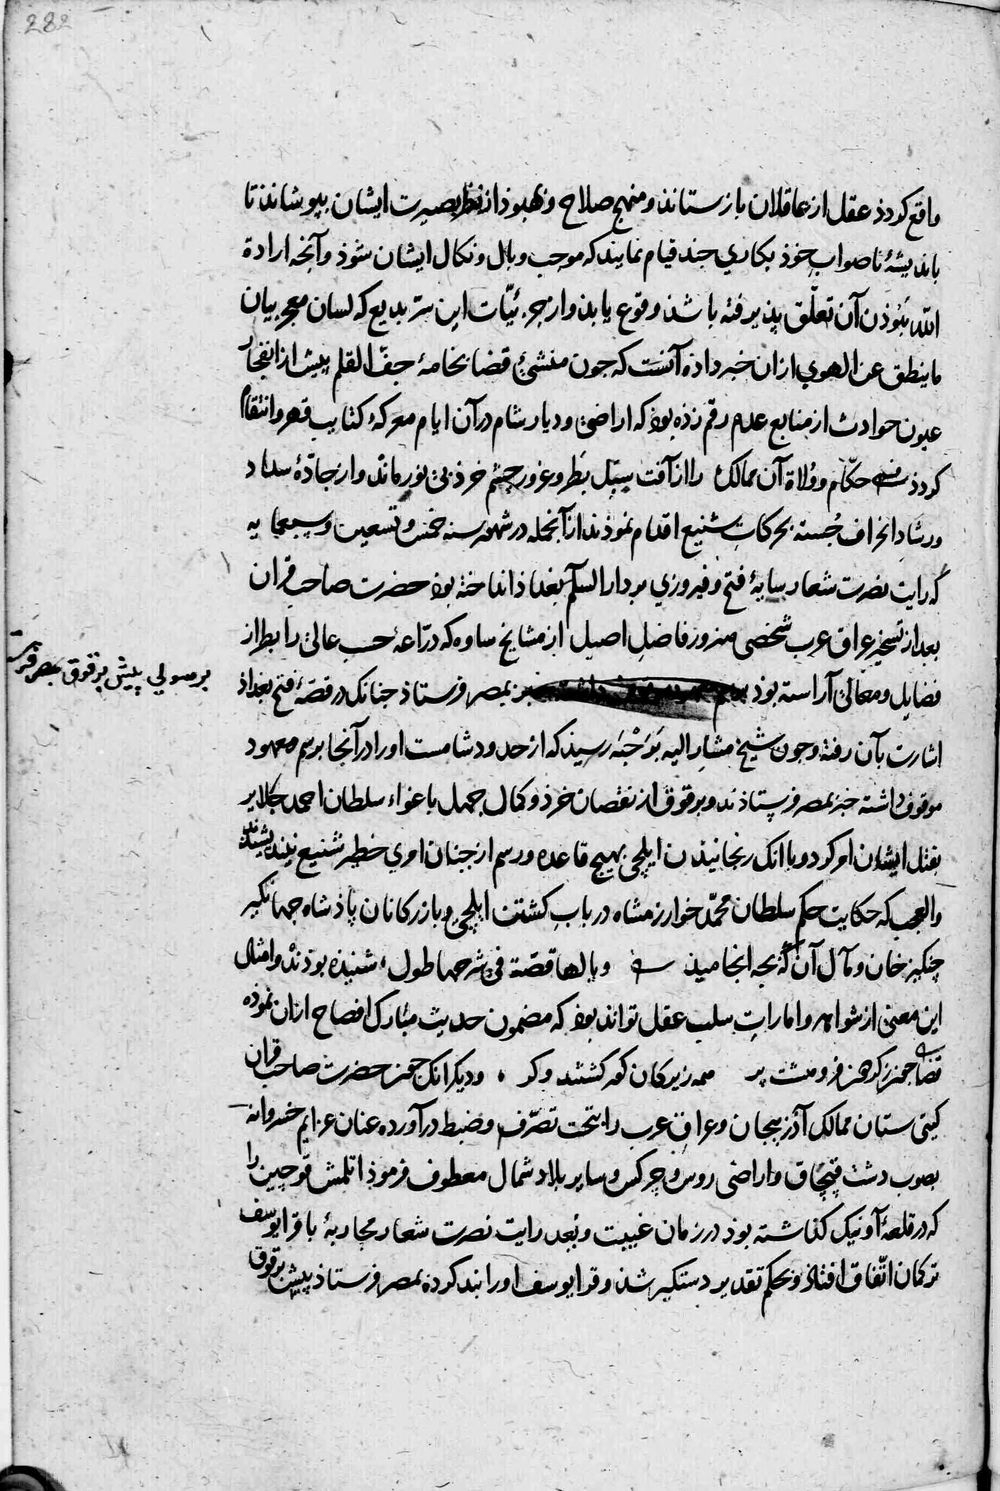 282
واقع کردذ عقل از عاقلان بازستانذ و منهج صلاح و بهبوذ از نظر بصیرت ایشان بپوشانذ تا
باندیشهٔ ناصواب خوذ بکاری چند قیام نمایند که موجب وبال و نکال ایشان شوذ و آنچه ارادة
الله ببوذن آن تعلّق پذیرفته باشذ وقوع یابذ و از جزئیّات این سرّ بدیع که لسان معجز بیان
ما ینطق عن الهوی از ان خبر داذه آنست که چون منشیٔ قضا بخامهٔ جفّ القلم پیش از انفجار
عیون حوادث از منابع عدم رقم زذه بوذ که اراضی و دیار شام در آن ایام معرکهٔ کتایب قهر و انتقام
کردذ حکّام و ولاة آن ممالک را از آفت سبل بطر و غرور چشم خرذ بی نور ماند و از جادّهٔ سداد
و رشاد انحراف جُسته بحرکات شنیع اقدام نموذند از آنجمله در شهور سنه خمس و تسعین و سبعمایه
که رایت نصرت شعار سایهٔ فتح و فیروزی بر دار السلم بغداذ انداخته بوذ حضرت صاحب قران
بعد از تسخیر عراق عرب شخصی هنرور فاضل اصیل از مشایخ ساوه که درّاعهٔ حسب عالی را بطراز
فضایل و معالی آراسته بوذ برسم بمصر فرستاذ چنانک در قصّهٔ فتح بغداذ
برسولی پیش برقوق بمصر فرستاد
اشارت بآن رفته و چون شیخ مشار الیه برَحْبَه رسیذ که از حدود شامست او را در آنجا برسم معهود
موقوف داشته خبر بمصر فرستاذند و برقوق از نقصان خرذ و کمال جهل باغواء سلطان احمد جلایر
بقتل ایشان امر کرد و با انک رنجانیذن ایلچی بهیچ قاعده و رسم از چنان امری خطیر شنیع نیندیشیدند
و العجب که حکایت حکم سلطان محمّد خوارزمشاه در باب کشتن ایلچی و بازرکانان پاذشاه جهانکیر
چنکیز خان و مآل آن که بچه انجامیذ و یا لها قصّة فی شرحها طول شنیذه بوذند و امثال
این معنی از شواهد و امارات سلب عقل تواند بوذ که مضمون حدیث مبارک افصاح از ان نموذه
قضا چون ز کردون فرو هشت پر همه زیرکان کور کشتند و کر ، و دیکر انک چون حضرت صاحب قران
کیتی ستان ممالک آذربیجان و عراق عرب را بتحت تصرّف و ضبط درآورده عنان عزایم خسروانه
بصوب دشت قبچاق و اراضی روس و چرکس و سایر بلاد شمال معطوف فرموذ اتلمش قوجین را
که در قلعهٔ آونیک کذاشته بوذ در زمان غیبت و بُعد رایت نصرت شعار محاربهٔ با قرا یوسف
ترکمان اتّفاق افتاذ و بحکم تقدیر دستکیر شذ و قرا یوسف او را بند کرده بمصر فرستاذ پیش برقوق